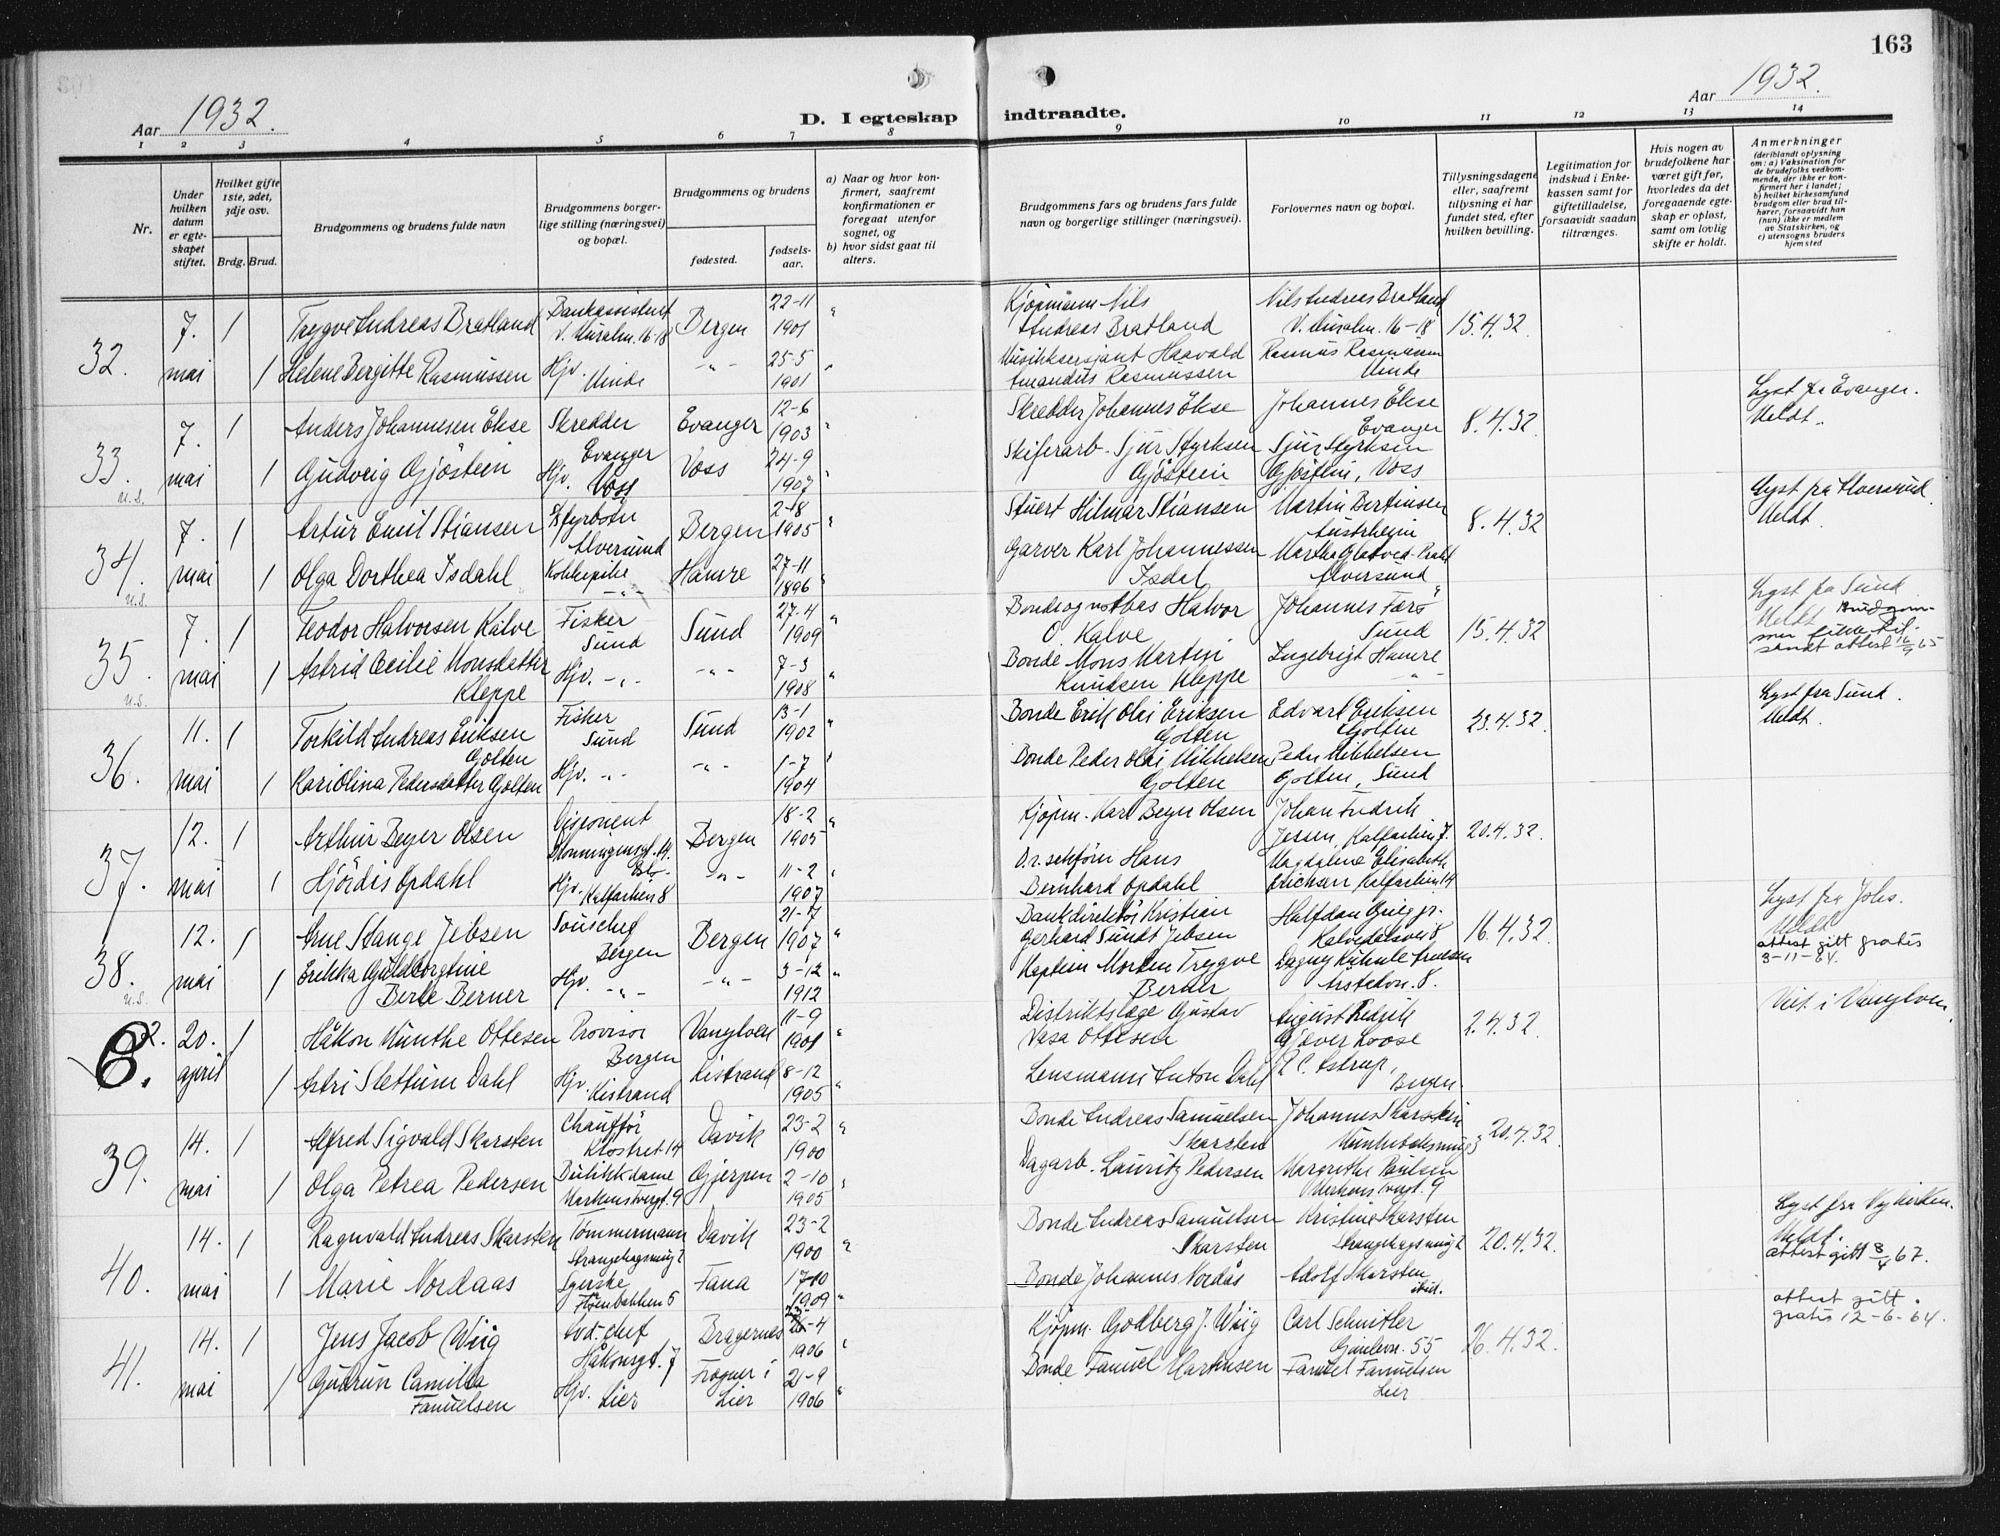 163
Aar 1932.
Aar 1932.
D. I egteskap indtraadte.
1 2 3 4 5 6 7 8 9 10 11 12 13 14
Nr.
Under hvilken datum er egteskapet stiftet.
Hvilket gifte 1ste, 2det, 3dje osv.
Brdg. Brud.
Brudgommens og brudens fulde navn
Brudgommens borgerlige stilling (næringsvei) og bopæl.
Brudgommens og brudens
fødested. fødselsaar.
a) Naar og hvor konfirmert, saafremt konfirmationen er foregaat utenfor sognet, og
b) hvor sidst gaat til alters.
Brudgommens fars og brudens fars fulde navn og borgerlige stillinger (næringsvei).
Forlovernes navn og bopæl.
Tillysningsdagene eller, saafremt tillysning ei har fundet sted, efter hvilken bevilling.
Legitimation for indskud i Enkekassen samt for giftetilladelse, forsaavidt saadan tiltrænges.
Hvis nogen av brudefolkene har været gift før, hvorledes da det foregaaende egteskap er opløst, samt om lovlig skifte er holdt.
Anmerkninger
(deriblandt oplysning om: a) Vaksination for de brudefolks vedkommende, der ikke er konfirmert her i landet; b) hvilket kirkesamfund brudgom eller brud tilhører, forsaavidt han (hun) ikke er medlem av Statskirken, og c) utensogns bruders hjemsted
32. 7. mai 1 Trygve Andreas Bratland Bankassistent Bergen 22-11 1901 Kjøpmann Nils Andreas Bratland Nils Andreas Bratland 16-18 15.4.32
1 Helene Bergitte Rasmussen Hjv. Minde -"- 25-5 1901 Haavald Amandus Rasmussen Rasmus Rasmussen Minde
33. u.s. 7. mai 1 Anders Johannesen Ekse Skredder Evanger Evanger 12-6 1903 Skredder Johannes Ekse Johannes Ekse Evanger 8.4.32 Lyst fra Evanger. Meldt.
1 Gudveig Gjøstein Hjv. Voss Voss 24-9 1907 Skiferarb. Sjur Styrksen Gjøstein Sjur Styrksen Gjøstein, Voss
34. u.s. 7. mai 1 Artur Emil Stiansen Alversund Bergen 2-8 1905 Stuert Hilmar Stiansen Martin Bertinsen Austrheim 8.4.32 Lyst fra Alversund. Meldt.
1 Olga Dorthea Isdahl Kokkepike -"- Hamre 27-11 1896 Garver Karl Johannessen Isdal Alversund
35. u.s. 7. mai 1 Teodor Halvorsen Kalve Fisker Sund Sund 27-4 1909 Halvor O. Kalve Johannes Færø Sund 15.4.32 Lyst fra Sund Meldt
1 Astrid Cecilie Monsdatter Kleppe Hjv. -"- -"- 7-3 1908 Bonde Mons Martin Knudsen Kleppe Ingebrigt Hamre -"-
36. 11. mai 1 Torkild Andreas Eriksen Golten Fisker Sund Sund 13-1 1902 Bonde Erik Olai Eriksen Golten Edvart Eriksen Golten 23.4.32 Lyst fra Sund. Meldt.
1 Kari Olina Pedersdatter Golten Hjv. -"- -"- 1-7 1904 Bonde Peder Olai Mikkelsen Golten Peder Mikkelsen Golten, Sund
37. 12. mai 1 Arthur Beyer Olsen Disponent Bergen 18-2 1905 Kjøpm. Karl Beyer Olsen Johan Fredrik Jessen, Kalfarlien 7. 20.4.32.
1 Hjördis Opdahl Hjv. Kalfarlien 8 -"- 11-2 1907 O.r. sakfører Hans Bernhard Opdahl Magdalena Elisabeth Kalfarlien 14
38. u.s. 12. mai 1 Arne Stange Jebsen Souschef Bergen Bergen 21-7 1907 Bankdirektør Kristian Gerhard Sundt Jebsen Halfdan Grieg jr. Kalvedalsvei 8 16.4.32 Lyst fra Johs. Meldt attest gitt gratis 3-11-64.
1 Erikka Guldborg Berle Berner Hjv. -"- -"- 3-12 1912 Kaptein Morten Trygve Berner Årstadvn. 8.
C. 2. 20. april 1 Håkon Munthe Ottesen Provisor Bergen Vanylven 11-9 1901 Distriktslege Gustav Vasa Ottesen August Fredrik 2.4.32 Viet i Vanylven.
1 Astri Slettum Dahl Hjv. Kistrand Kistrand 8-12 1905 Lensmann Anton Dahl Astrup, Bergen.
39. 14. mai 1 Alfred Sigvald Skarsten Chauffør Klostret 14 Davik 23-2 1900 Bonde Andreas Samuelsen Skarsten Johannes Skarstein 20.4.32.
1 Olga Petrea Pedersen Butikkdame 9 Gjerpen 2-10 1905 Dagarb. Lauritz Pedersen Margrethe Paulsen 9
40. 14. mai 1 Ragnvald Andreas Skarsten Tømmermann Davik 23-2 1900 Bonde Andreas Samuelsen Skarsten Kristine Skarsten 20.4.32. Lyst fra Nykirken. Meldt. attest gitt 8/4 67.
1 Marie Nordaas Syerske 5 Fana 17-10 1909 Bonde Johannes Nordås Adolf Skarsten ibid.
41. 14. mai 1 Jens Jacob Wiig Håkonsgt. 7 Bragernes 1906 Kjøpm. Godberg J. Wiig Carl Schnitler 55 26.4.32. attest gitt gratis 12-6-64.
1 Gudrun Camilla Fanuelsen Hjv. Lier Frogner i Lier 21-9 1906 Bonde Fanuel Martinsen Fanuel Fanuelsen Lier